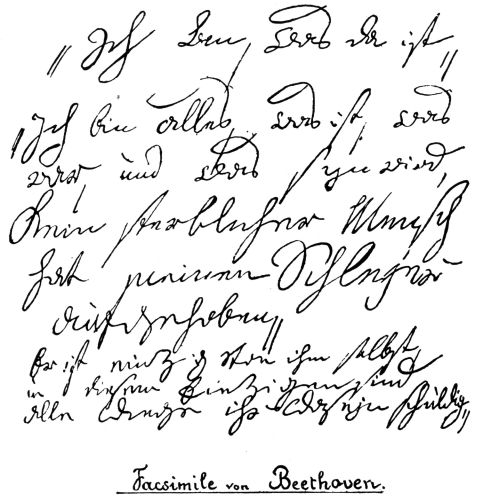 „Ich bin, was da ist"
„Ich bin alles, was ist, was
war, und was seyn wird,
Kein sterblicher Mensch
hat meinen Schleyer
aufgehoben"
Er ist einzig von ihm selbst,
u diesem Einzigen sind
alle Dinge ihr Daseyn schuldig"
Facsimile von Beethoven.